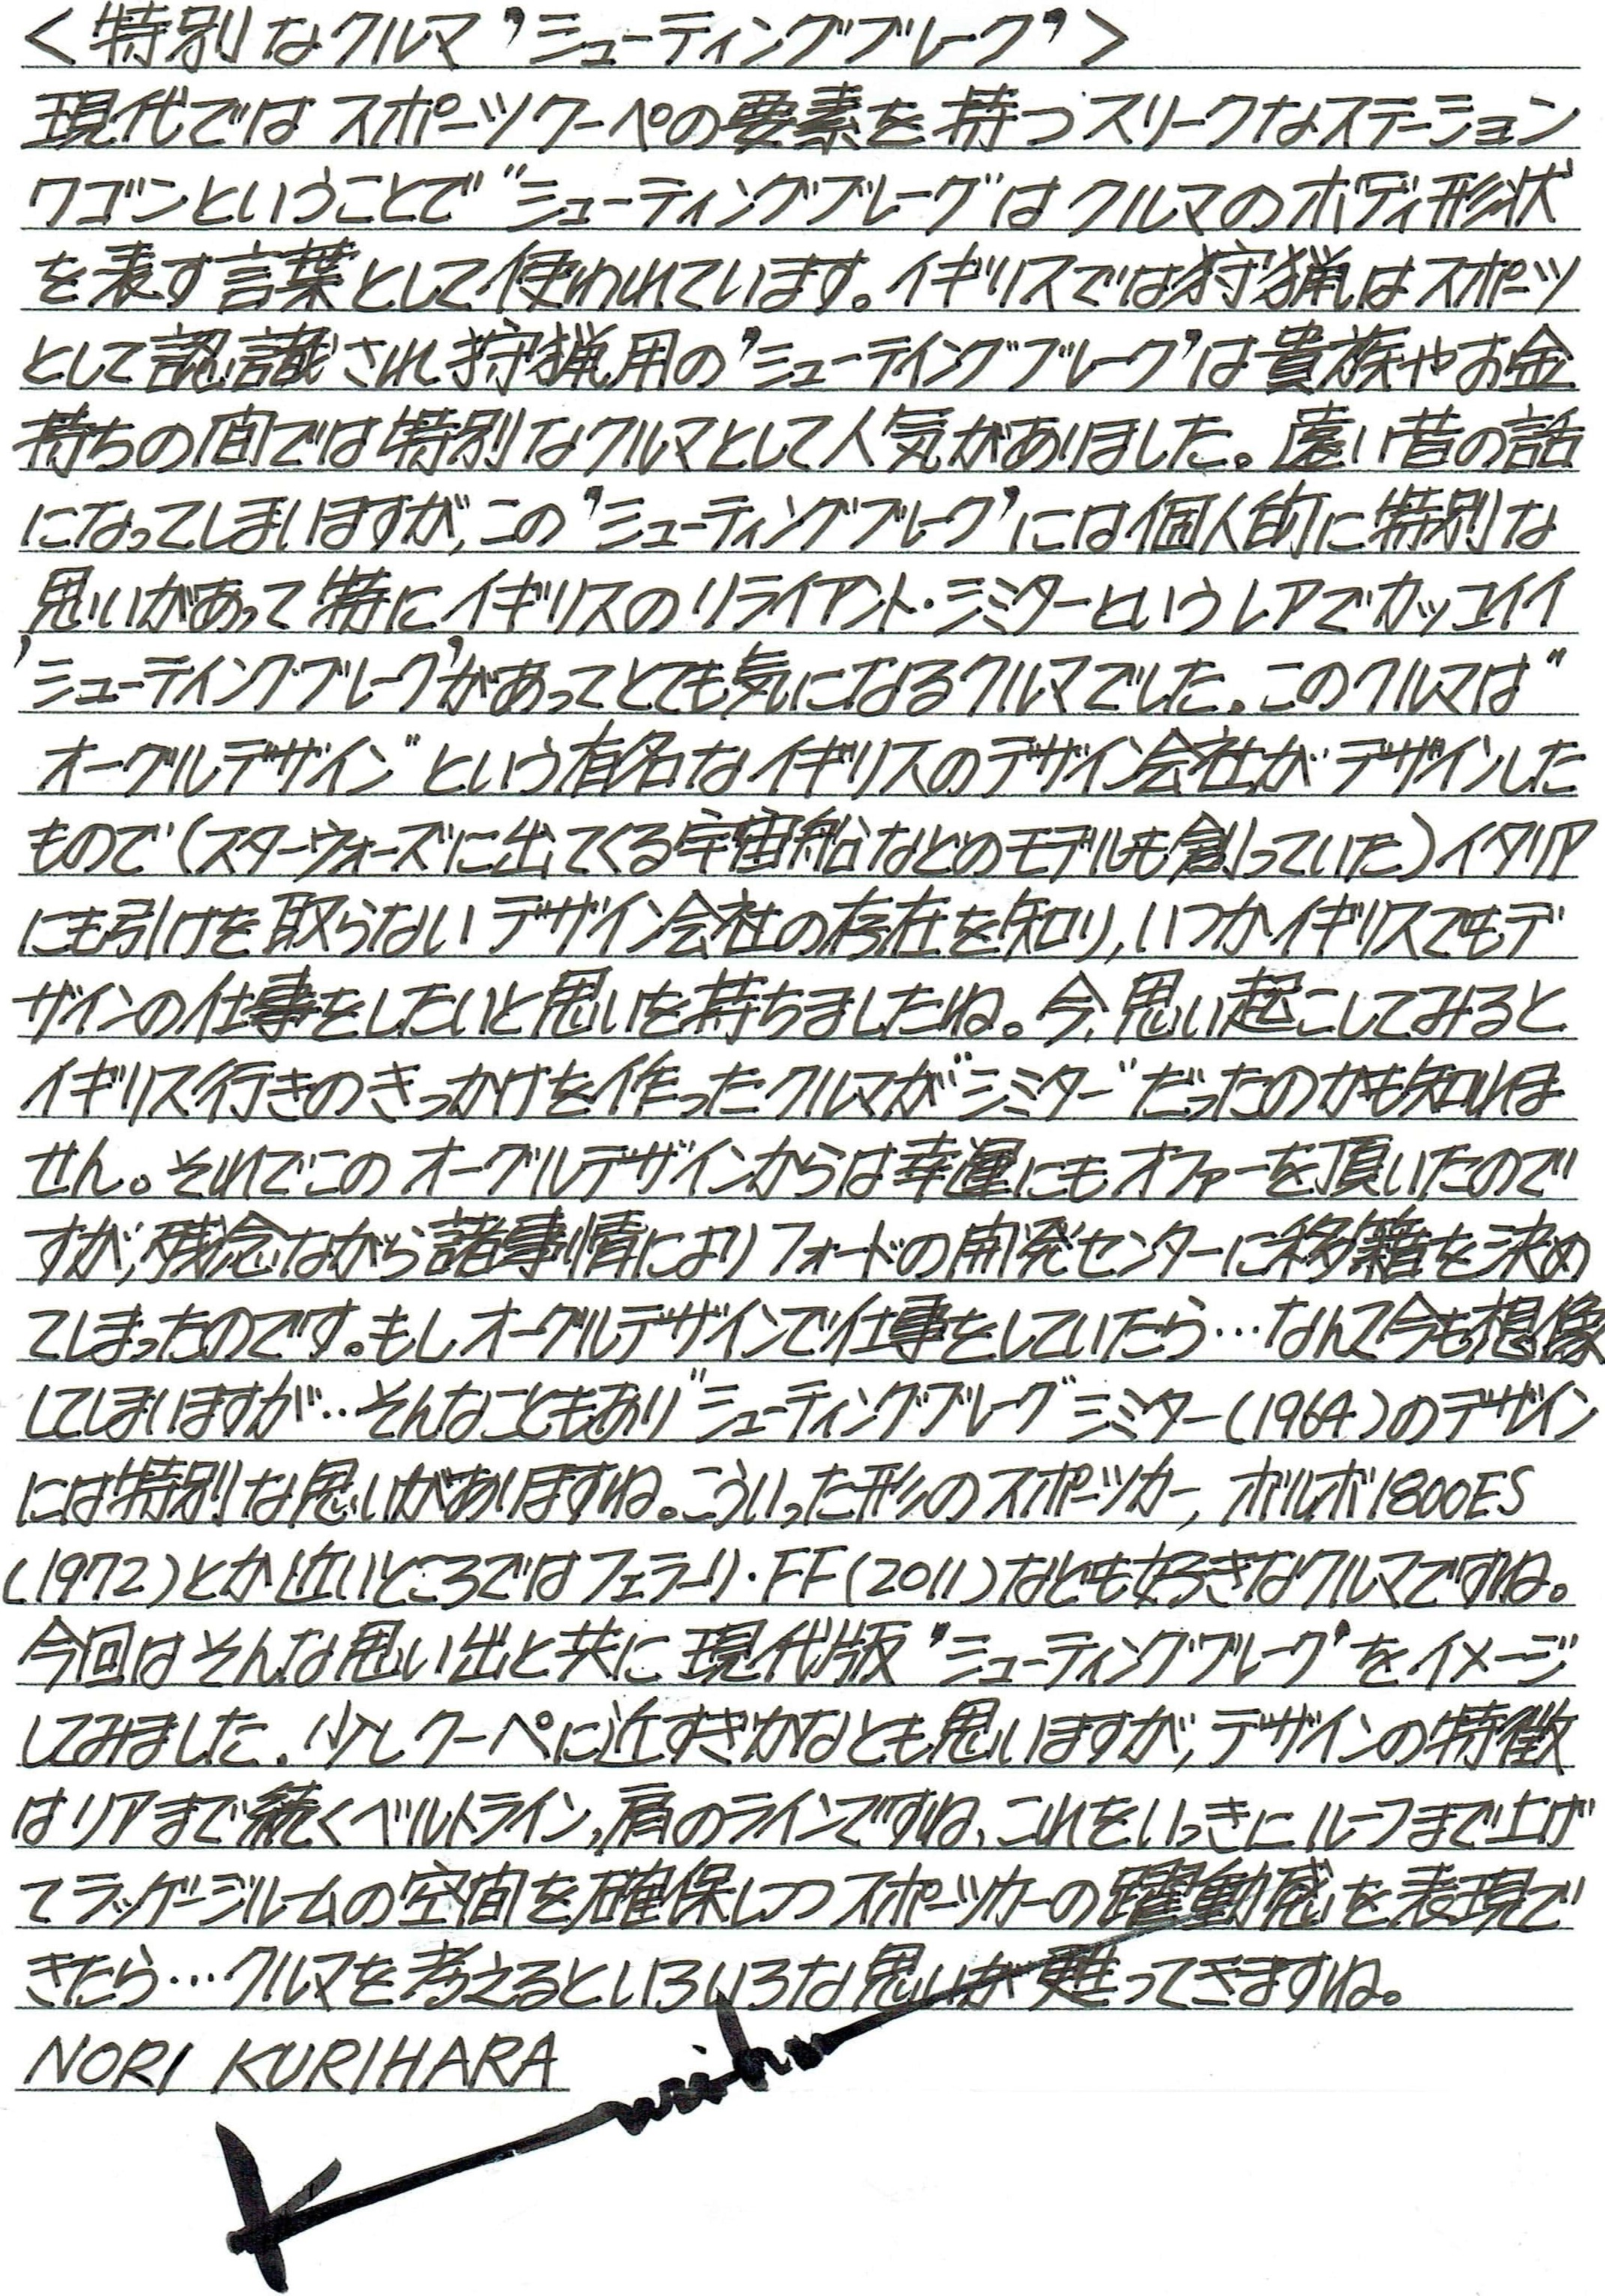 ＜特別なクルマ’シューティングブレーク’＞
現代ではスポーツクーペの要素を持つスリークなステーション
ワゴンということで”シューティングブレーク”はクルマのボディ形状
を表す言葉として使われています。イギリスでは狩猟はスポーツ
として認識され狩猟用の’シューティングブレーク’は貴族やお金
持ちの間では特別なクルマとして人気がありました。遠い昔の話
になってしまいますが、この’シューティングブレーク’には個人的に特別な
思いがあって特にイギリスのリライアント・シミターというレアでカッコイイ
’シューティングブレーク’があってとても気になるクルマでした。このクルマは”
オーグルデザイン”という有名なイギリスのデザイン会社がデザインした
もので（スターウォーズに出てくる宇宙船などのモデルも創っていた）イタリア
にも引けを取らないデザイン会社の存在を知り、いつかイギリスでもデ
ザインの仕事をしたいと思いを持ちましたね。今、思い起こしてみると
イギリス行きのきっかけを作ったクルマが”シミター”だったのかも知れま
せん。それでこのオーグルデザインからは幸運にもオファーを頂いたので
すが、残念ながら諸事情によりフォードの開発センターに移籍を決め
てしまったのです。もしオーグルデザインで仕事をしていたら…なんて今も想像
してしまいますが…そんなこともあり”シューティングブレーク”シミター（1964）のデザイン
には特別な思いがありますね。こういった形のスポーツカー、ボルボ1800ES
（1972）とか近いところではフェラーリ・FF（2011）なども好きなクルマですね。
今回はそんな思い出と共に現代版’シューティングブレーク’をイメージ
してみました。少しクーペに近すぎかなとも思いますが、デザインの特徴
はリアまで続くベルトライン、肩のラインですね、これをいっきにルーフまで上げ
てラッゲージルームの空間を確保しつつスポーツカーの躍動感を表現で
きたら…クルマを考えるといろいろな思いが甦ってきますね。
NORI KURIHARA